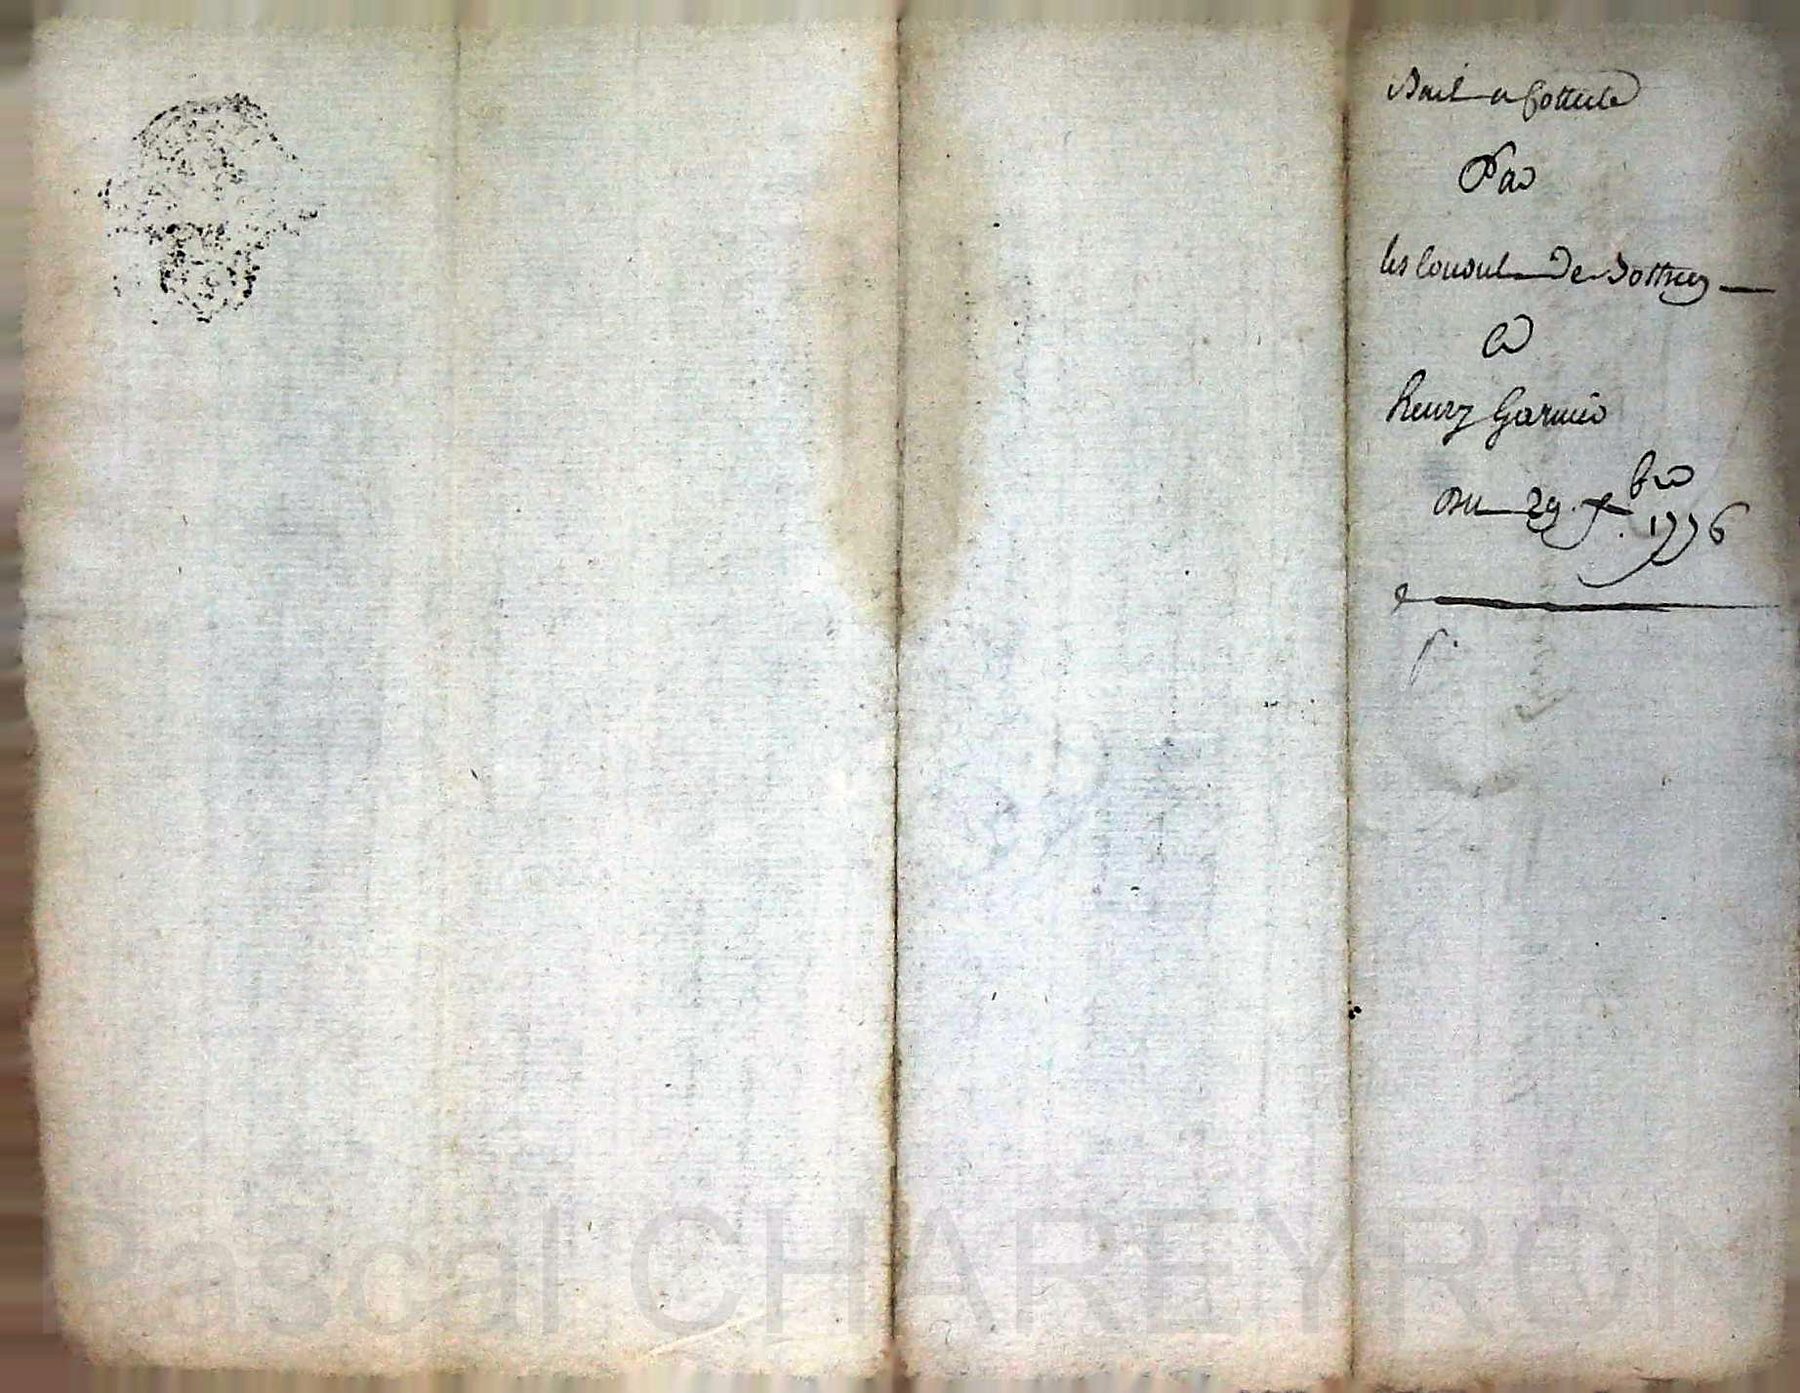 Bail a Cotture
Par
les Consul De
a
henry Garnier
Du 29. Xbre 1776
Pascal CHAREYRON